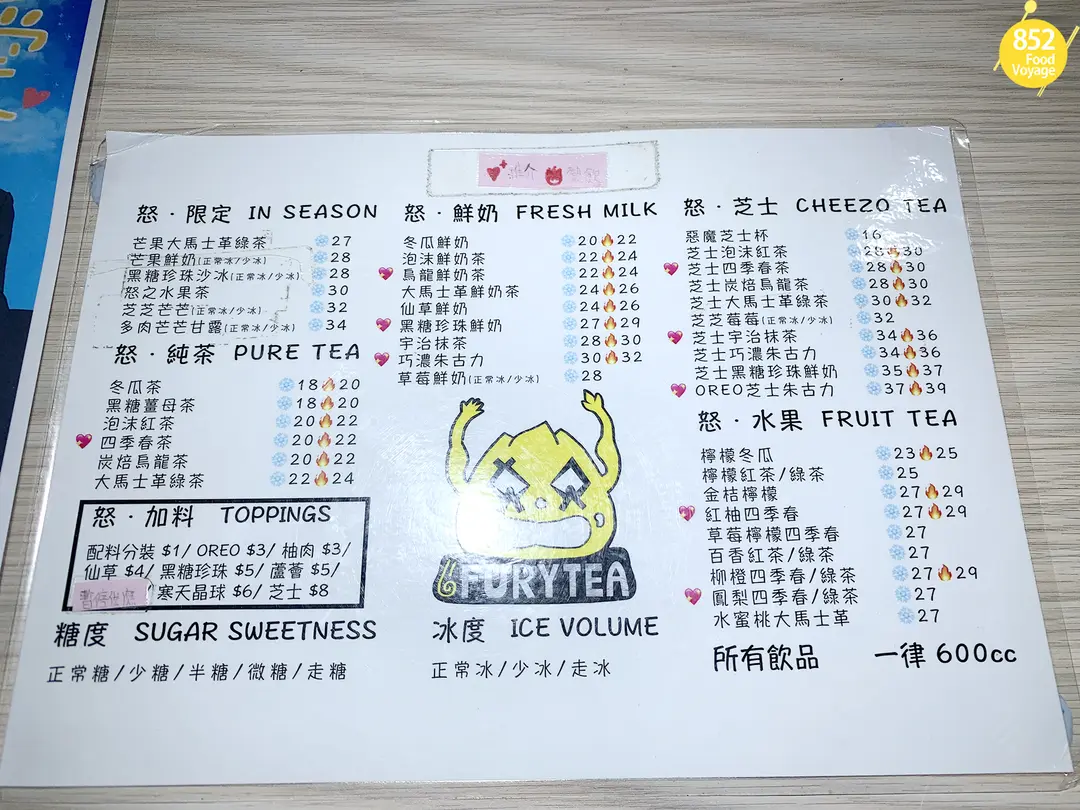 852
Food
Voyage
推介
怒·限定 IN SEASON
芒果大馬士革綠茶 ❄27
芒果鮮奶(正常冰/少冰) ❄28
黑糖珍珠沙冰(正常冰/少冰) ❄28
怒之水果茶 ❄30
芝芝芒芒(正常冰/少冰) ❄32
多肉芒芒甘露(正常冰/少冰) ❄34
怒·純茶 PURE TEA
冬瓜茶 ❄18🔥20
黑糖薑母茶 ❄18🔥20
泡沫紅茶 ❄20🔥22
💖四季春茶 ❄20🔥22
炭焙烏龍茶 ❄20🔥22
大馬士革綠茶 ❄22🔥24
怒·加料 TOPPINGS
配料分裝 $1/ OREO $3/ 柚肉 $3/
仙草 $4/ 黑糖珍珠 $5/ 蘆薈 $5/
暫停供應 寒天晶球 $6/ 芝士 $8
糖度 SUGAR SWEETNESS
正常糖/少糖/半糖/微糖/走糖
怒·鮮奶 FRESH MILK
冬瓜鮮奶 ❄20🔥22
泡沫鮮奶茶 ❄22🔥24
💖烏龍鮮奶茶 ❄22🔥24
大馬士革鮮奶茶 ❄24🔥26
仙草鮮奶 ❄24🔥26
💖黑糖珍珠鮮奶 ❄27🔥29
宇治抹茶 ❄28🔥30
💖巧濃朱古力 ❄30🔥32
草莓鮮奶(正常冰/少冰) ❄28
FURYTEA
冰度 ICE VOLUME
正常冰/少冰/走冰
怒·芝士 CHEEZO TEA
惡魔芝士杯 ❄16
芝士泡沫紅茶 ❄28🔥30
💖芝士四季春茶 ❄28🔥30
芝士炭焙烏龍茶 ❄28🔥30
芝士大馬士革綠茶 ❄30🔥32
芝芝莓莓(正常冰/少冰) ❄32
💖芝士宇治抹茶 ❄34🔥36
芝士巧濃朱古力 ❄34🔥36
芝士黑糖珍珠鮮奶 ❄35🔥37
💖OREO芝士朱古力 ❄37🔥39
怒·水果 FRUIT TEA
檸檬冬瓜 ❄23🔥25
檸檬紅茶/綠茶 ❄25
金桔檸檬 ❄27🔥29
💖紅柚四季春 ❄27🔥29
草莓檸檬四季春 ❄27
百香紅茶/綠茶 ❄27
柳橙四季春/綠茶 ❄27🔥29
💖鳳梨四季春/綠茶 ❄27
水蜜桃大馬士革 ❄27
所有飲品 一律 600cc